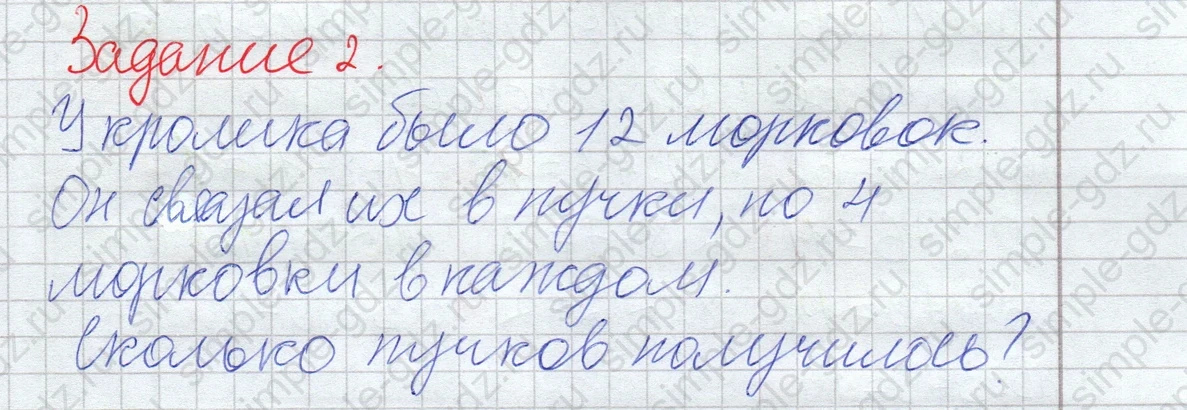 Задание 2.
У кролика было 12 морковок.
Он связал их в пучки, по 4
морковки в каждом.
Сколько пучков получилось?